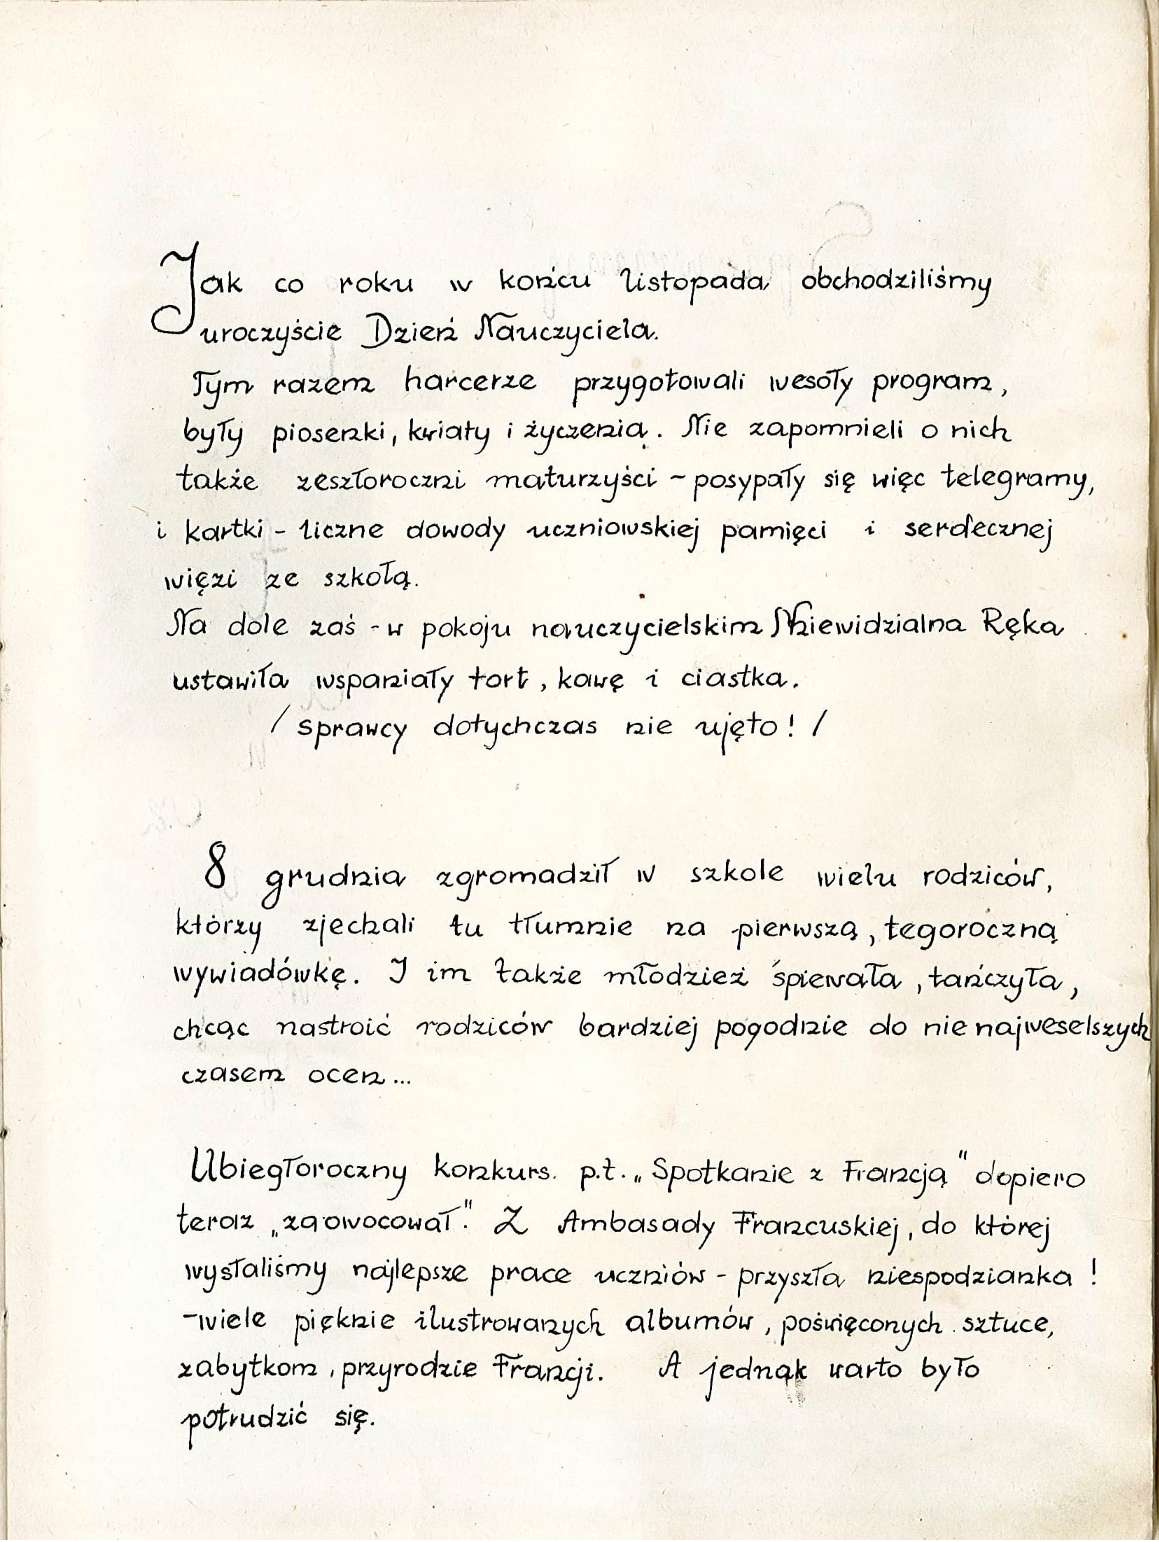 Jak co roku w końcu listopada obchodziliśmy
uroczyście Dzień Nauczyciela.
Tym razem harcerze przygotowali wesoły program,
były piosenki, kwiaty i życzenia. Nie zapomnieli o nich
także zeszłoroczni maturzyści - posypały się więc telegramy,
i kartki - liczne dowody uczniowskiej pamięci i serdecznej
więzi ze szkołą.
Na dole zaś - w pokoju nauczycielskim Niewidzialna Ręka
ustawiła wspaniały tort, kawę i ciastka.
/ sprawcy dotychczas nie ujęto! /
8 grudnia zgromadził w szkole wielu rodziców,
którzy zjechali tu tłumnie na pierwszą, tegoroczną
wywiadówkę. I im także młodzież śpiewała, tańczyła,
chcąc nastroić rodziców bardziej pogodnie do nie najweselszych
czasem ocen...
Ubiegłoroczny konkurs p.t. „Spotkanie z Francją" dopiero
teraz „zaowocował". Z Ambasady Francuskiej, do której
wysłaliśmy najlepsze prace uczniów - przyszła niespodzianka!
- wiele pięknie ilustrowanych albumów, poświęconych sztuce,
zabytkom, przyrodzie Francji. A jednąk warto było
potrudzić się.